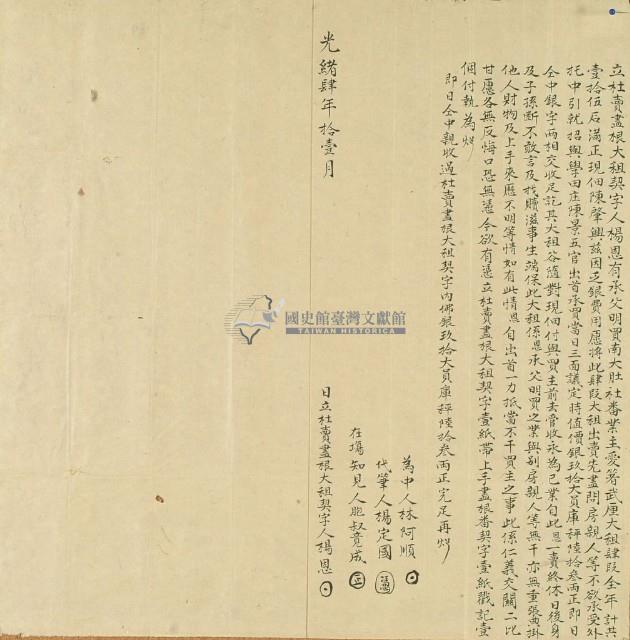 立杜賣盡根大租契字人楊恩有承父明買南大肚社番業主愛箸武厘大租肆段全年計共
壹拾伍石滿正現佃陳肇興茲因乏銀費用愿將此肆段大租出賣先盡問房親人等不欲承受外
托中引就招與學田庄陳景五官出首承買當日三面議定時值價銀玖拾大員庫秤陸拾叁兩正即日
仝中銀字兩相交收足訖其大租谷隨對現佃付與買主前去管收永為己業自此恩一賣終休日後身
及子孫断不敢言及找贖滋事生端保此大租係恩承父明買之業與別房親人等無干亦無重張典掛
他人財物及上手來歷不明等情如有此情恩自出首一力抵當不干買主之事此係仁義交關二比
甘愿各無反悔口恐無憑今欲有憑立杜賣盡根大租契字壹紙帶上手盡根番契字壹紙戳記壹
個付執為炤
即日仝中親收過杜賣盡根大租契字內佛銀玖拾大員庫秤陸拾叁兩正完足再炤
為中人林阿順
代筆人楊定國
在塲知見人胞叔竟成
光緒肆年拾壹月
日立杜賣盡根大租契字人楊恩
國史館臺灣文獻館
TAIWAN HISTORICA